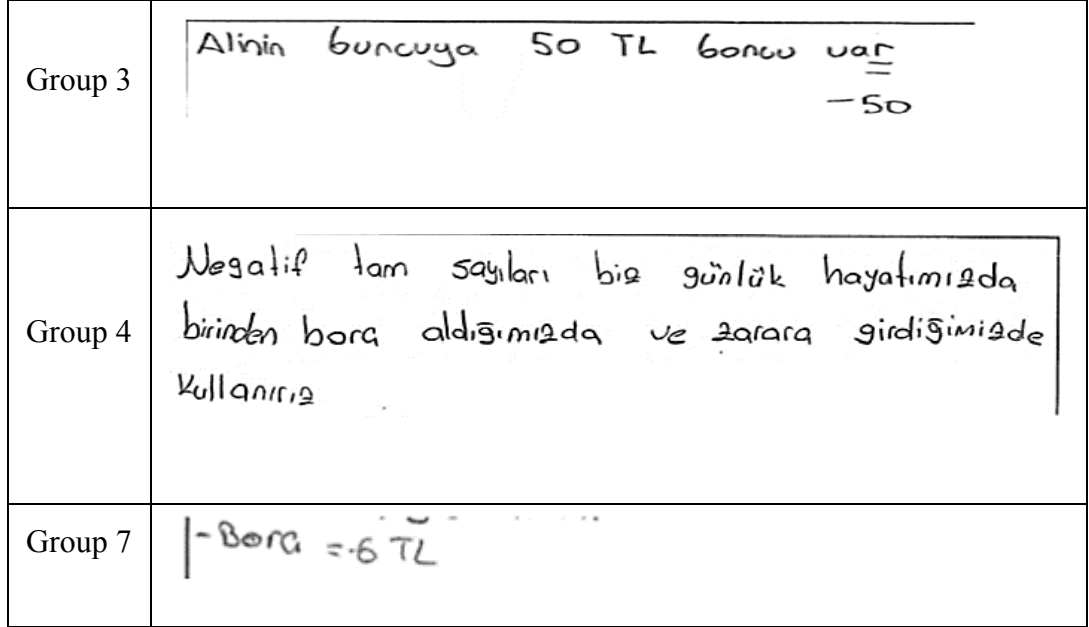 Group 3
Alinin buncuya 50 TL boncu var
-50
Group 4
Negatif tam sayıları biz günlük hayatımızda
birinden borç aldığımızda ve zarara girdiğimizde
kullanırız
Group 7
- Borç = -6 TL